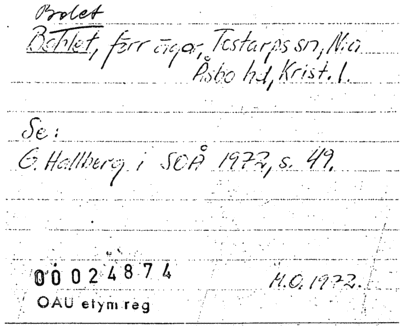 Bolet
Bohlet, förr ägor, Tostarps sn, N:a
Åsbo hd, Krist. l.
Se:
G. Hallberg i SOÅ 1972, s. 49.
00024874
M.O. 1972.
OAU etym reg